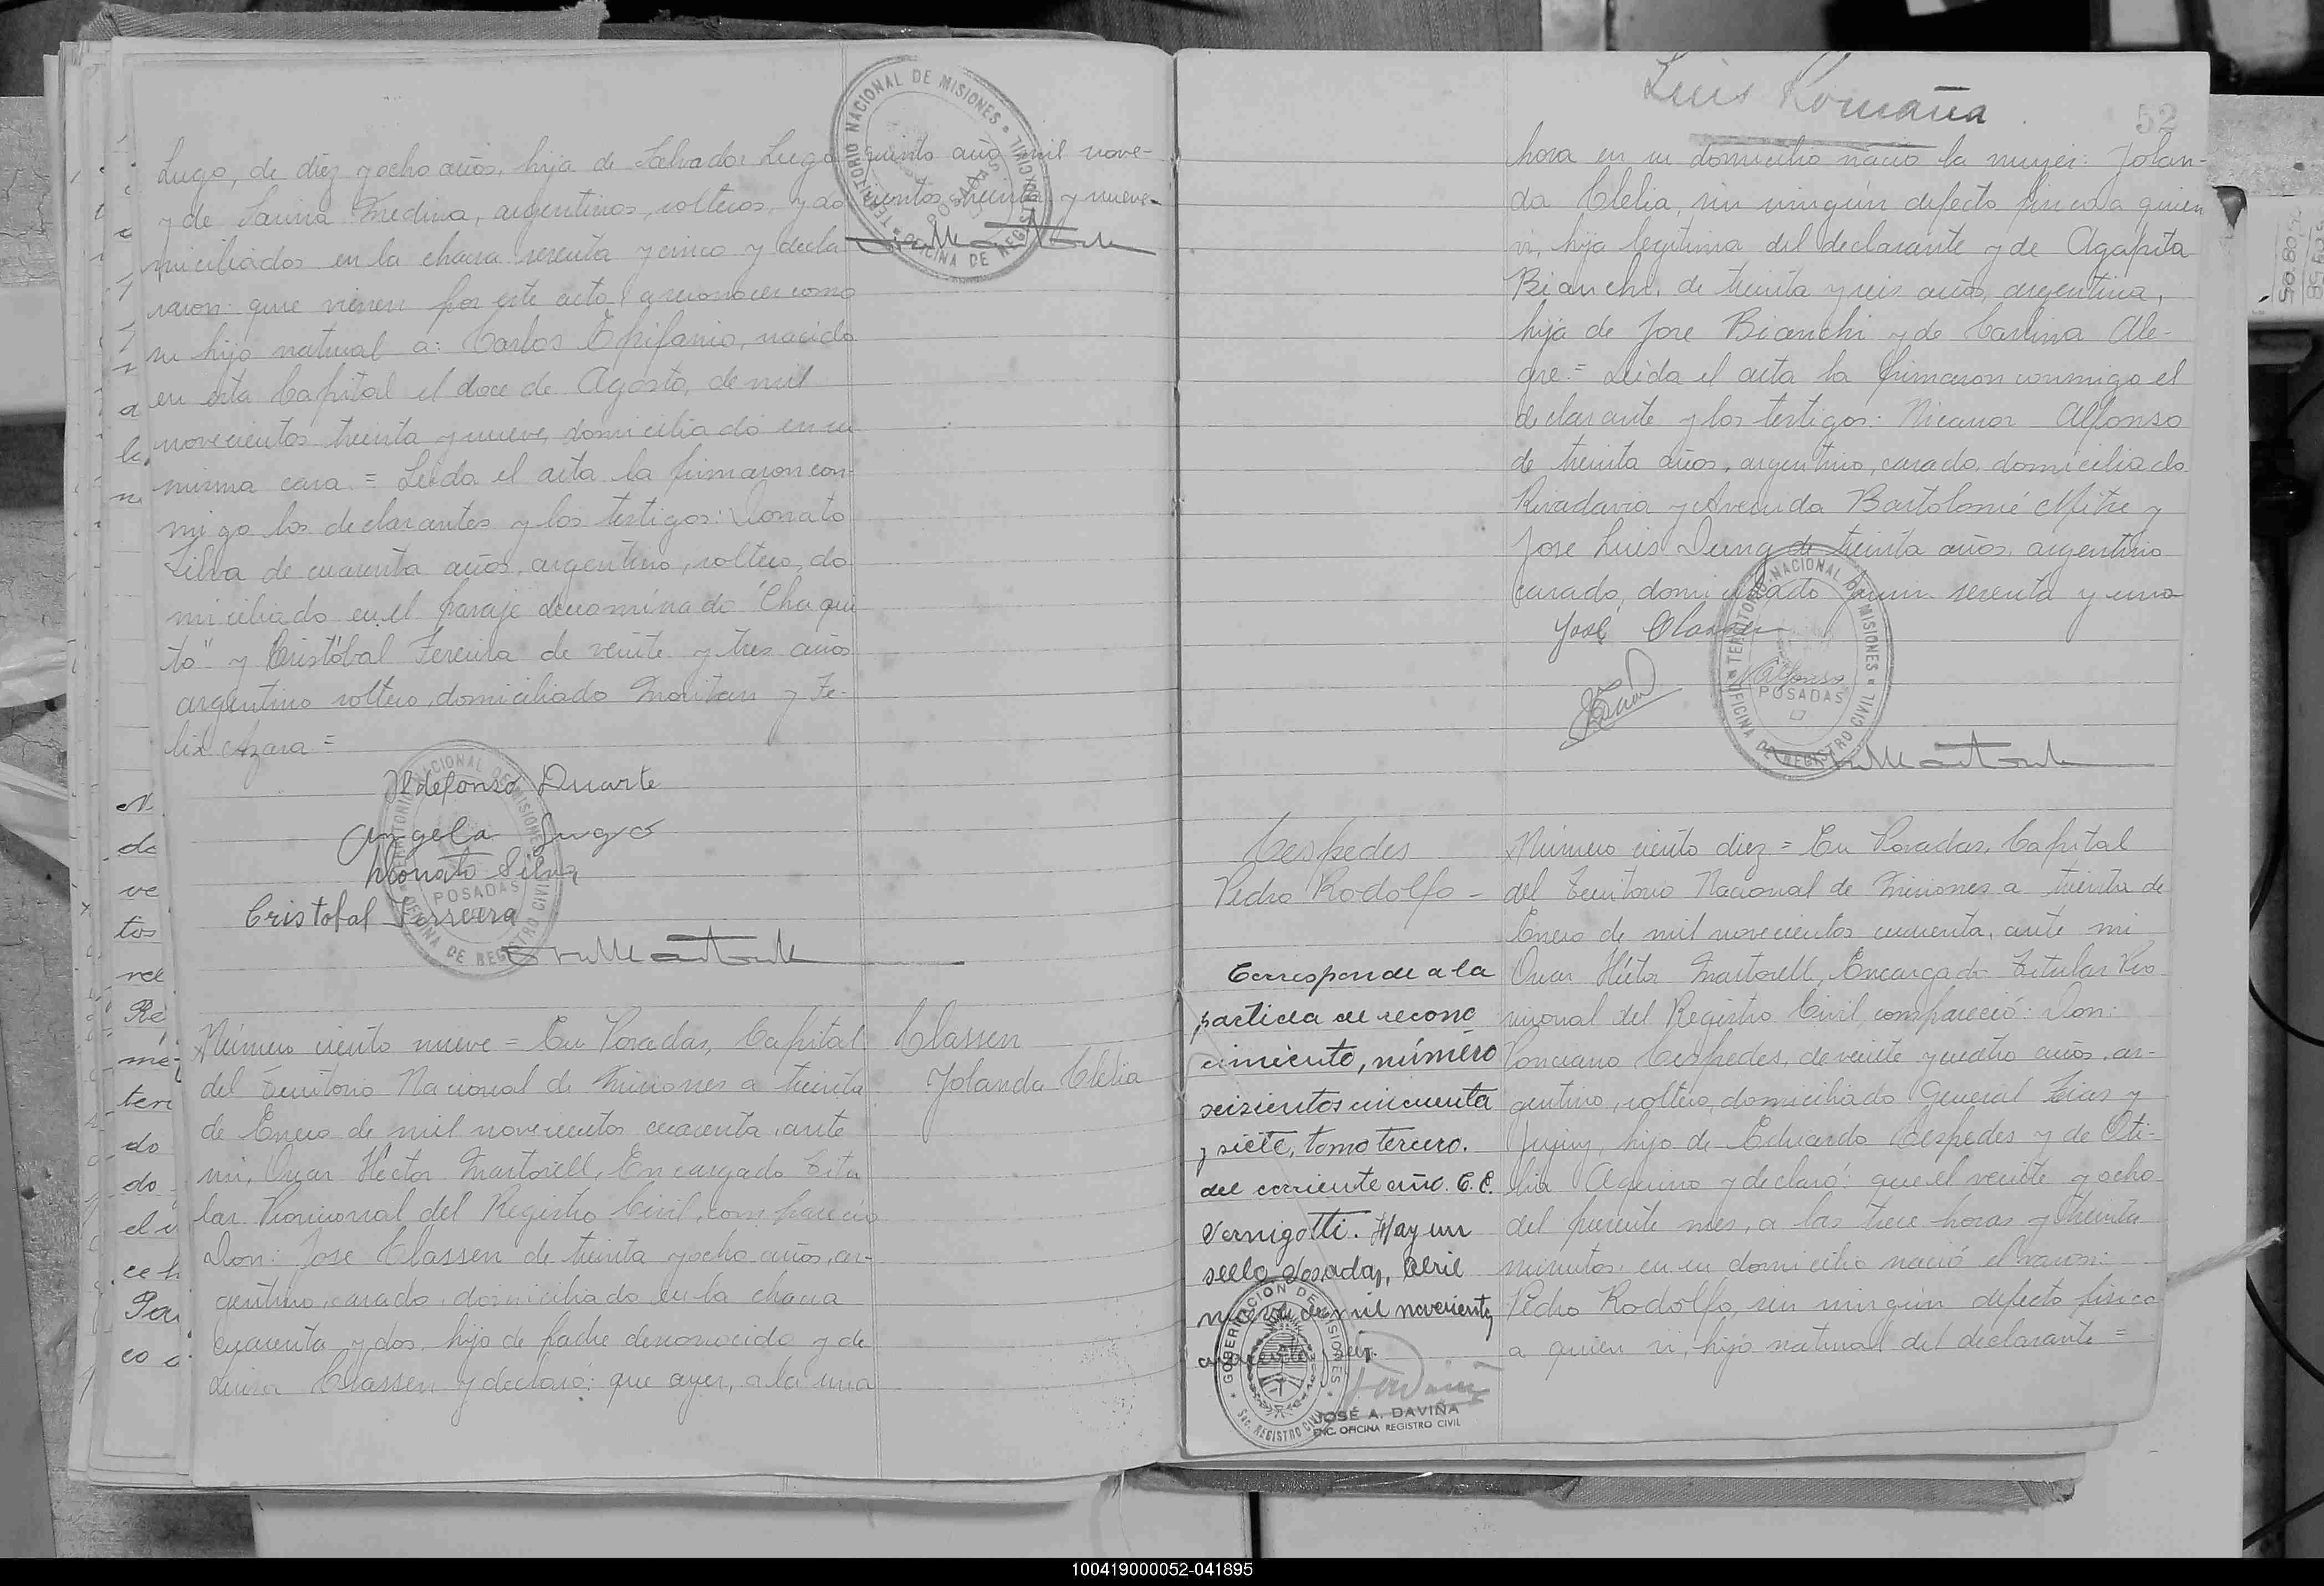 Lugo, de diez y ocho años, hija de Salvador Lugo
y de Saurina Medina, argentinos, solteros, y do
miciliados en la chacra sesenta y cinco y decla
raron: que vienen por este acto a reconocer como
su hijo natural a: Carlos Epifanio, nacido
en esta Capital el doce de Agosto, de mil
novecientos treinta y nueve, domiciliado en su
misma casa = Leida el acta la firmaron con-
migo los declarantes y los testigos: Donato
Silva de cuarenta años, argentino, soltero, do
miciliado en el paraje denominado "Chaqui
to" y Cristóbal Ferreira de veinte y tres años
argentino soltero, domiciliado y Fe-
lix Azara =
quinto año mil nove-
cientos treinta y nueve-
TERRITORIO NACIONAL DE MISIONES
OFICINA DE REGISTRO CIVIL
POSADAS
Ildefonso Duarte
Angela Lugo
Donato Silva
Cristobal Ferreira
TERRITORIO NACIONAL DE MISIONES
OFICINA DE REGISTRO CIVIL
POSADAS
Classen
Yolanda Clelia
Número ciento nueve = En Posadas, Capital
del Territorio Nacional de Misiones a treinta
de Enero de mil novecientos cuarenta, ante
mi, Omar Héctor Martorell, Encargado Titu
lar Provisional del Registro Civil, compareció
Don: Jose Classen de treinta y ocho años, ar-
gentino, casado, domiciliado en la chacra
cuarenta y dos, hijo de padre desconocido y de
Luisa Classen y declaró: que ayer, a la una
Luis Romaña
52
hora en su domicilio nació la mujer: Yolan-
da Clelia, sin ningún defecto fisico a quien
vi, hija legitima del declarante y de Agapita
Bianchi, de treinta y seis años, argentina,
hija de Jose Bianchi y de Carlina Ale-
gre = Leida el acta la firmaron conmigo el
declarante y los testigos: Nicanor Alfonso
de treinta años, argentino, casado, domiciliado
Rivadavia y Avenida Bartolomé Mitre y
Jose Luis Dung de treinta años, argentino
casado, domiciliado Junin sesenta y uno
José Classen
NAlfonso
TERRITORIO NACIONAL DE MISIONES
OFICINA DE REGISTRO CIVIL
POSADAS
Cespedes
Pedro Rodolfo -
Corresponde a la
partida de recono
cimiento, número
seisientos cincuenta
y siete, tomo tercero.
del corriente año. C.C.
Vernigotti. Hay un
sello. Posadas, Abril
nueve de mil novecientos
cuarenta y seis.
GOBERNACION DE MISIONES
Sec. REGISTRO CIVIL
JOSÉ A. DAVIÑA
ENC. OFICINA REGISTRO CIVIL
Número ciento diez = En Posadas, Capital
del Territorio Nacional de Misiones a treinta de
Enero de mil novecientos cuarenta, ante mi
Omar Héctor Martorell, Encargado Titular Pro
visional del Registro Civil, compareció: Don:
Ponciano Cespedes, de veinte y cuatro años, ar-
gentino, soltero, domiciliado General Frias y
Jujuy, hijo de Eduardo Cespedes y de Oti-
lia Aquino y declaró: que el veinte y ocho
del presente mes, a las trece horas y treinta
minutos en su domicilio nació el varon:
Pedro Rodolfo, sin ningún defecto fisico
a quien vi, hijo natural del declarante =
100419000052-041895